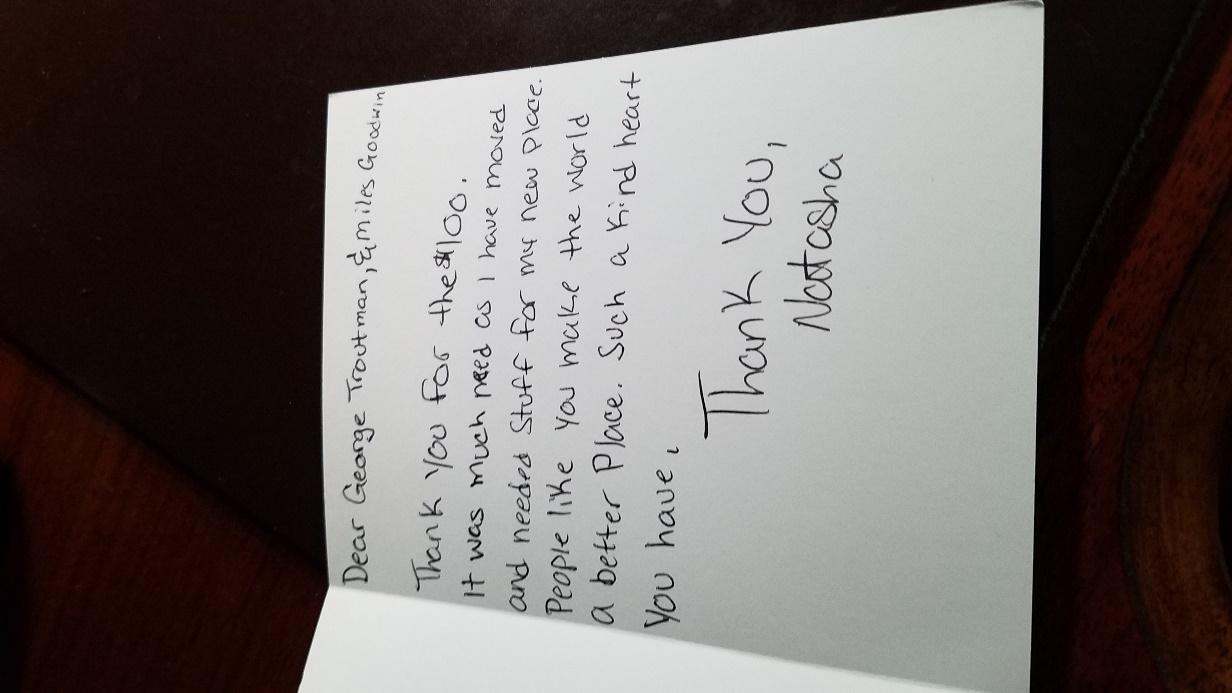 Dear George Troutman, & miles Goodwin
Thank You for the $100.
It was much need as I have moved
and needed stuff for my new place.
People like you make the world
a better Place. Such a kind heart
you have,
Thank You,
Natasha